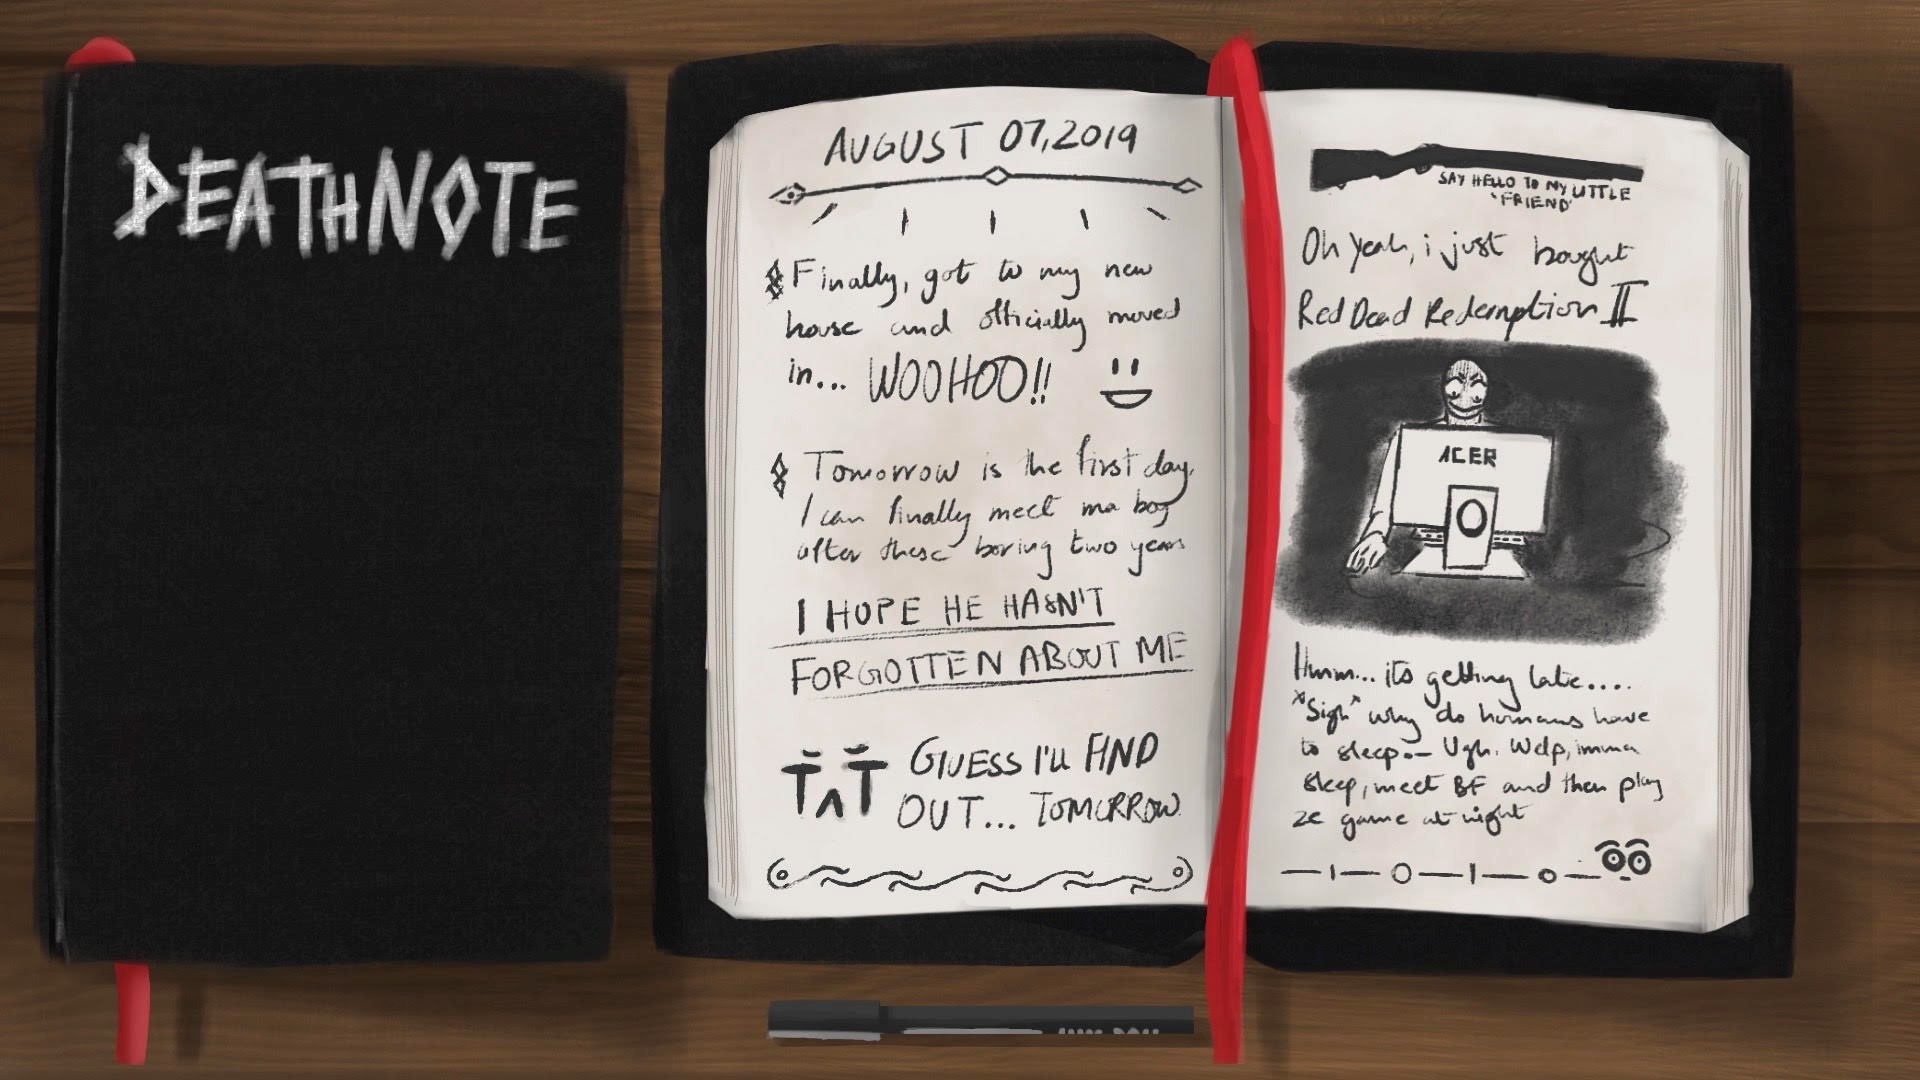 DEATHNOTE
AUGUST 07, 2019
Finally, got to my new
house and officially moved
in... WOOHOO!!
Tomorrow is the first day,
I can finally meet ma boy
after these boring two years
I HOPE HE HASN'T
FORGOTTEN ABOUT ME
TAT GUESS I'll FIND
OUT... TOMORROW.
SAY HELLO TO MY LITTLE
'FRIEND'
Oh yeah, i just bought
Red Dead Redemption II
ACER
Hmm... its getting late....
*Sigh* why do humans have
to sleep.— Ugh. Welp, imma
sleep, meet BF and then play
ze game at night